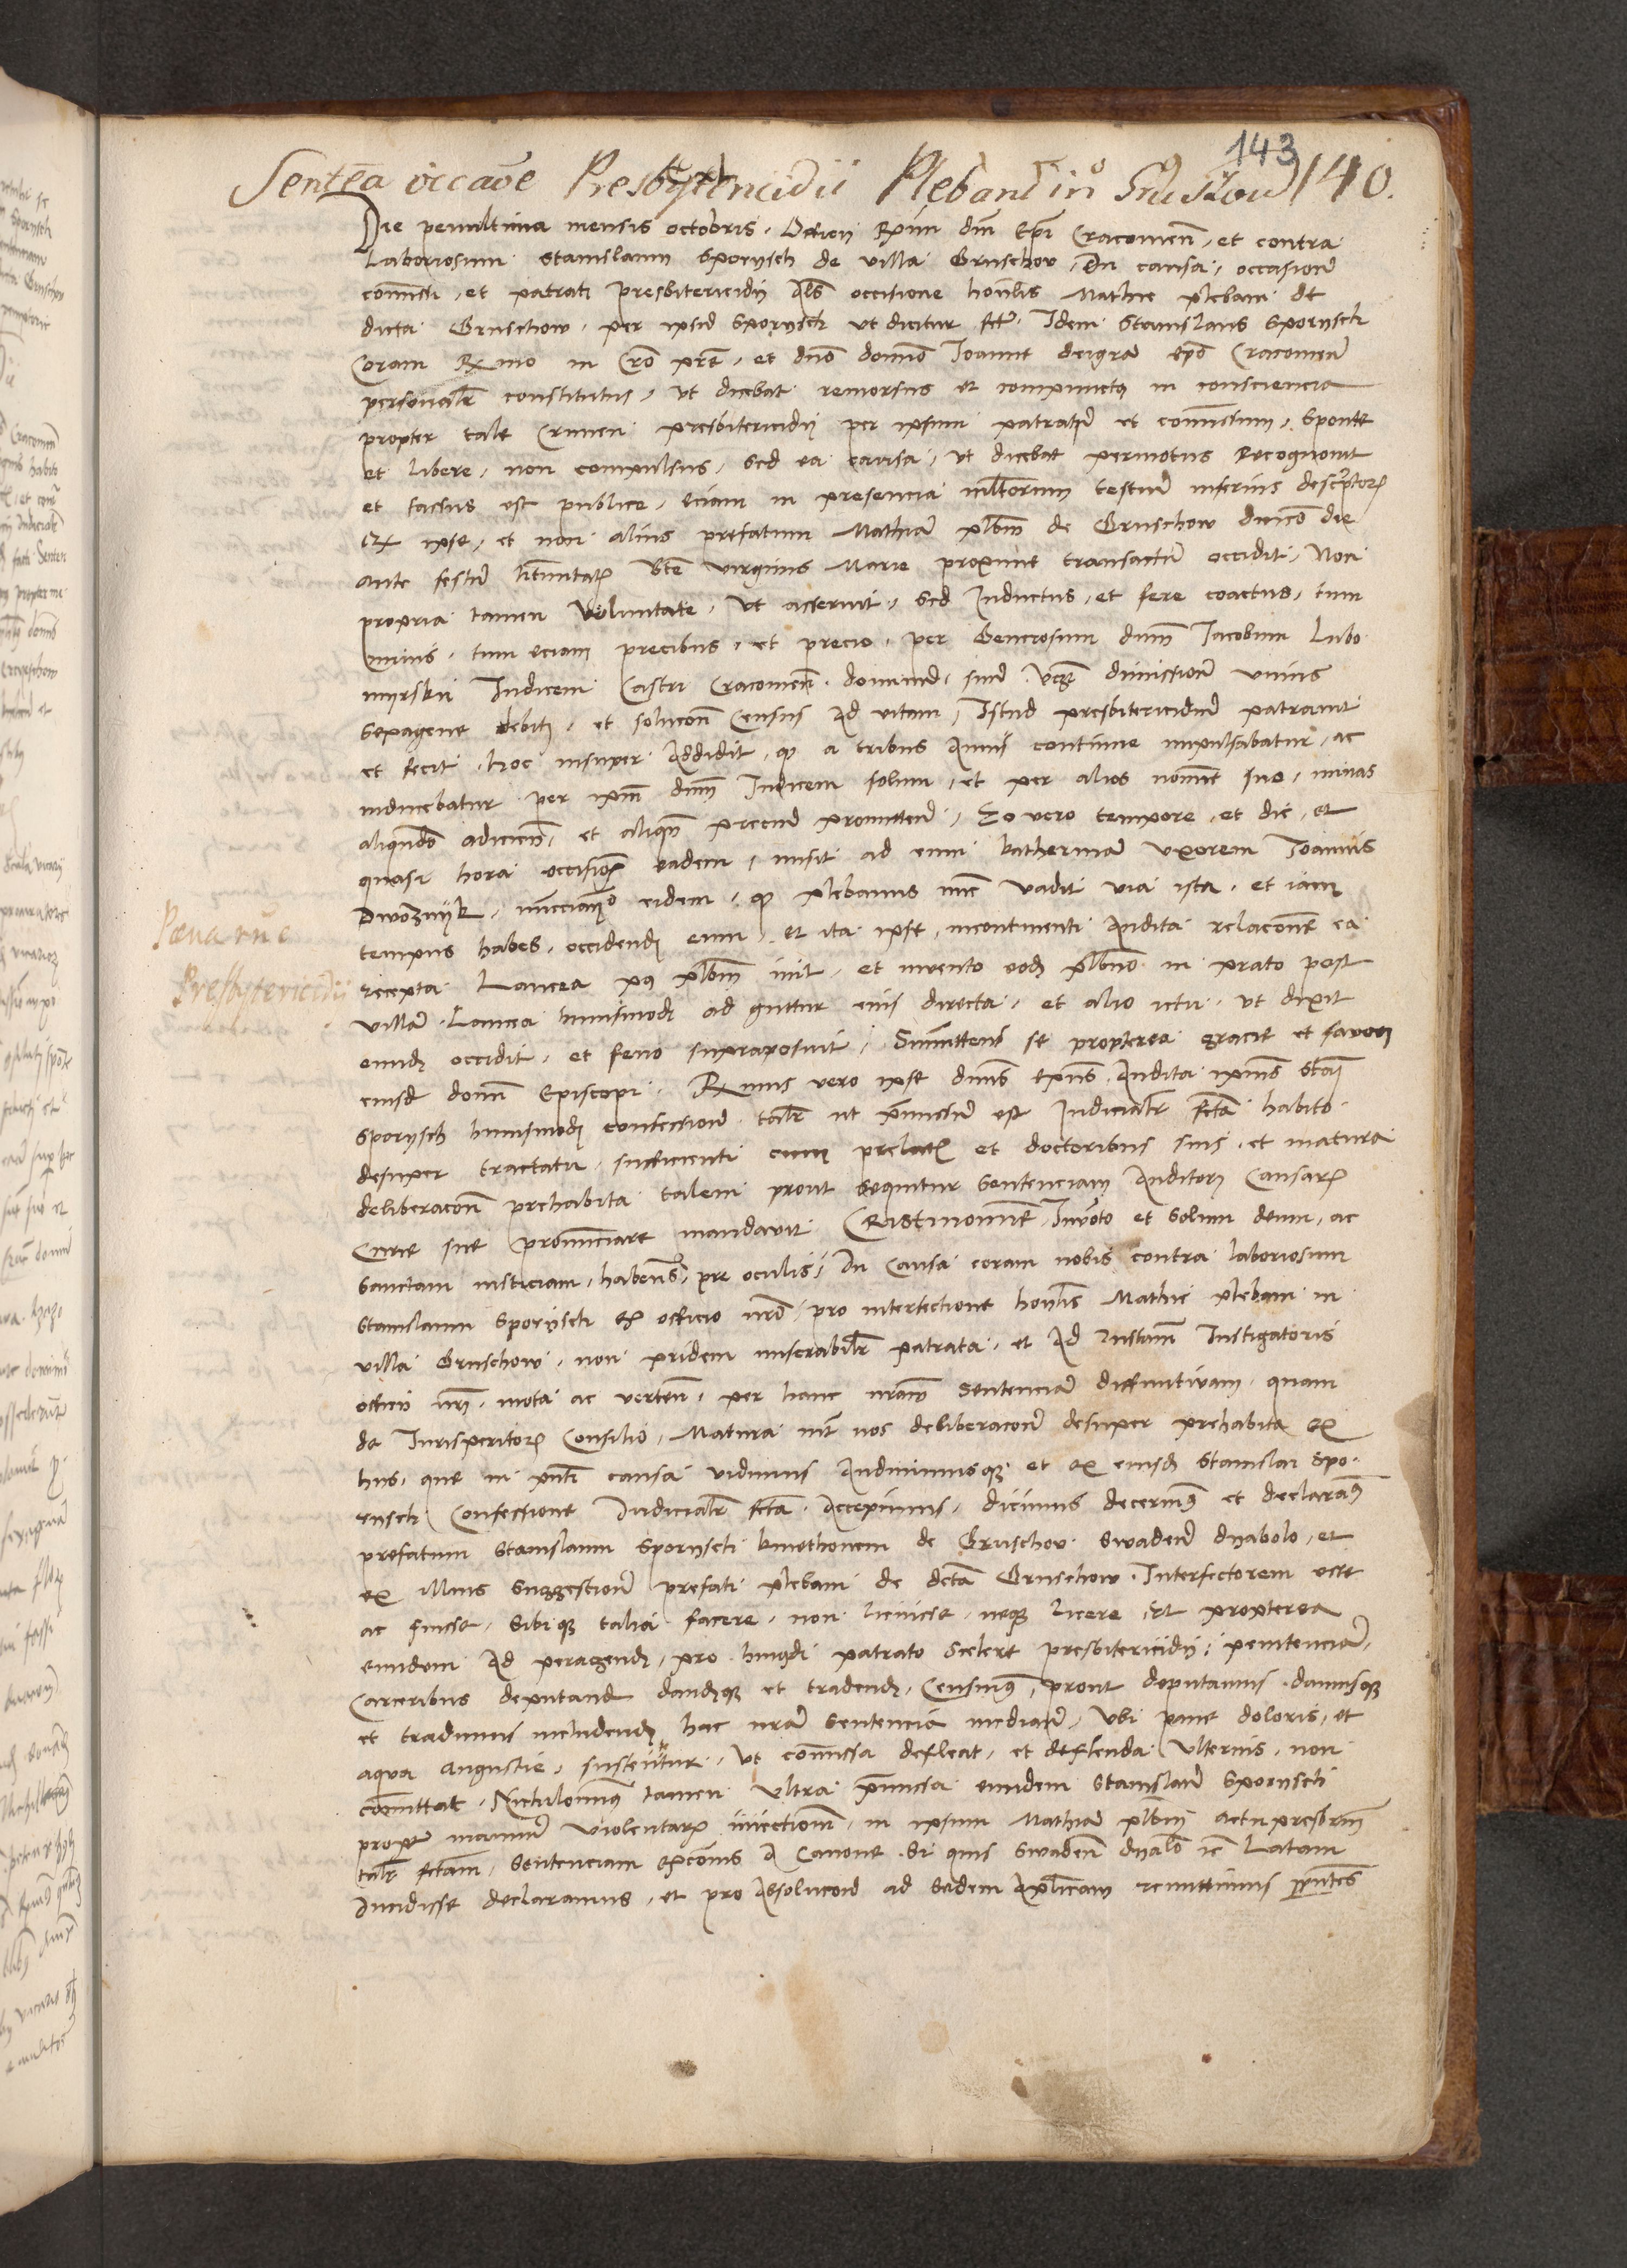 143
Senten̄a occaōe Presbytericidii Plebani in Gruszow 140.
Die penultima mensis octobris. Officij R͞mi dn̄i Ep̄i Cracouien̄, et contra
Laboriosum Stanislaum Sporysch de villa Gruschow, In causa, occasione
com̄issi, et patrati presbitericidij Als occisione hon̄lis Mathie plebani de
dicta Gruschow, per ipsū Sporysch ut dicitur fct̄e. Idem Stanislaus Sporysch
Coram R͞mo in Cr̄o pr̄e, et dn̄o domō Joanne dei gr̄a ep̄o Cracouien̄
personalr̄ constitutus, ut dicebat remorsus et compunctꝰ in consciencia
propter tale Crimen presbitericidij per ipsum patratū et com̄issum, Sponte
et libere, non compulsus, sed ea causa, ut dicebat permotus Recognouit
et fassus est publice, eciam in presencia multorum testiū inferius descriptorꝝ
Qꝫ ipse, et non alius prefatum Mathiā plbm̄ de Gruschow dn̄ico die
ante festū Natiuitatis bt̄e virginis Marie proxime transactū occidit, Non
propria tamen voluntate, ut asseruit, sed Inductus, et fere coactus, tum
minis, tum eciam precibus, et precio, per Generosum dn̄m Jacobum Lubo
myrskij Judicem Castri Cracouien̄. dominū suū dimissionē unius
sexagene debitꝫ, et soluconē Census Ad vitam, Istud presbitericidiū patrauit
et fecit, hoc insuper Addidit, qꝫ a tribus Annis continue impulsabatur, ac
inducebatur per ip̄m dn̄m Judicem solum, et per alios nomine suo, minas
aliqn̄do adiciēn̄, et aliqn̄ preciū promittend̄, Eo vero tempore, et die, et
quasi hora occisionꝫ eadem, misit ad eum katherinā uxorem Joannis
Dwoznyk, nuncciando eidem, qꝫ plebanus nūc vadit via ista, et iam
tempus habes, occidendi eum, et ita ipse, incontinenti Audita relacōne ea
recepta Lancea pꝰ plbm̄ iuit, et inuento eodꝫ plbn̄o in prato post
villā, Lancea huiusmodi ad guttur eius directa, et alio ictu, ut dixit
eundꝫ occidit, et feno supraposuit, Summittens se propterea gracie et fauori
eiusd̄ domī Episcopi. R͞mus vero ipse dn̄us Ep̄us, Audita ipsius Stan̄i
Sporysch huiusmodi confessione talr̄ ut p̄missū est Judicialr̄ fct̄a habito
desuper tractatu sufficienti cum prelatis et doctoribus suis, et matura
deliberacōne prehabita talem prout sequitur Sentenciam Auditori Causarꝝ
Curie sue pronunciare mandauit. Cristi nomine Inuocato et Solum deum, ac
Sanctam iusticiam, habentes, pre oculis, In Causa coram nobis contra laboriosum
Stanislaum Sporysch Ex officio nr̄o, pro interfectione hon̄lis Mathie plebani in
villa Gruschow, non pridem miserabilr̄ patrata, et Ad Instan̄ Instigatoris
officij nr̄i, mota ac verten̄, per hanc nr̄am Sentenciā diffinitiuam, quam
de Jurisperitorꝝ Consilio, Matura int̄ nos deliberacōne desuper prehabita ex
hijs, que in p̄nti causa vidimus Audiuimusqꝫ et ex eiusdꝫ Stanislai Spo
rysch Confessione Judicialr̄ fct̄a Accepimus, dicimus decernimꝰ et declaramꝰ
prefatum Stanislaum Sporysch kmethonem de Gruschow Swadente dyabolo, et
ex illius suggestione prefati plebani de dct̄a Gruschow Interfectorem esse
ac fuisse, sibiqꝫ talia facere, non licuisse, neqꝫ licere, Et propterea
eundem Ad peragendū, pro hm̄odi patrato scelere presbitericidij, penitenciā,
Carceribus deputand̄ dandūqꝫ et tradendū, Censuimꝰ, prout deputamus, damusqꝫ
et tradimus includendū hac nr̄a Sentencia mediante, Ubi pane doloris, et
aqua Angustie, sustentetur, ut com̄issa defleat, et deflenda ulterius, non
com̄ittat. Nichilominꝰ tamen ultra p̄missa eundem Stanislaū Sporysch
propter manuū violentarꝝ iniectionē, in ipsum Mathiā plbm̄ actu presbr̄m
talr̄ fct̄am, Sentenciam excōis A Canone Si quis Swaden̄ dyab̄lo ꝛc̄ Latam
Incidisse declaramus, et pro Absolucōne ad Sedem Aplicam remittimus p̄ntes
Pœna rūe
Presbytericidii